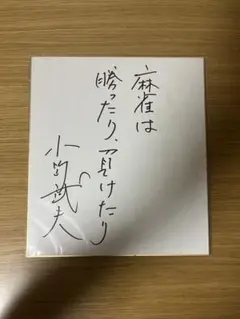 麻雀は
勝ったり、負けたり
小島武夫